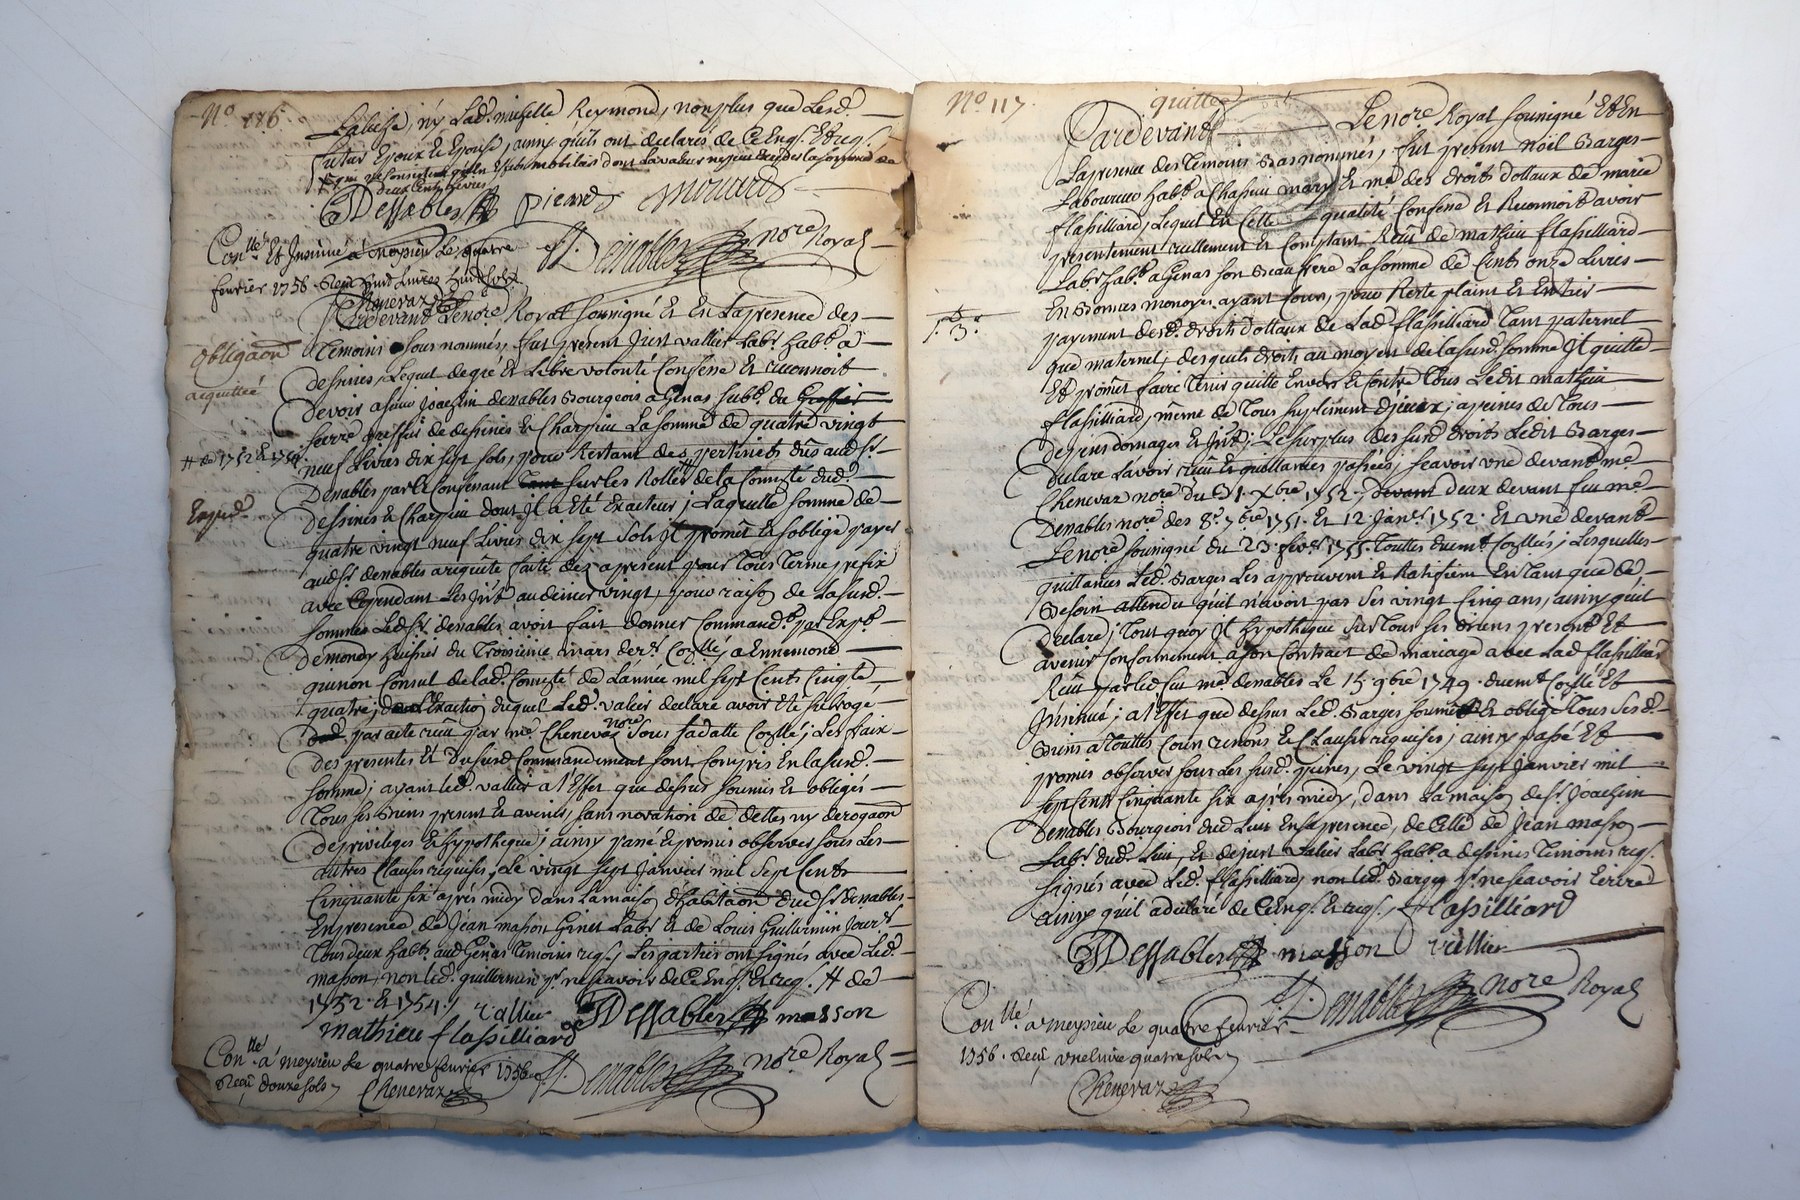 No 116.
Labisse, ny Lad. miselle Reymond, non plus que Lesd.
futur Epoux Et Epouse, ainsy qu'ils ont declarés de Ce Enqs. Et reqs.
deux Cent Livres
DEssables pierre mourard
Conllé Et Insinué a meysieu Le quatre
fevrier 1756. Reçu huit Livres huit sols
Chenevaz
Denables nore Royal
Pardevant Lenore Royal sousigné Et En Lapresence des
obligaon
acquittée
Temoins sous nommés, fut present Just vallier Labr habt a
dessines, Lequel de gré Et Libre volonté Confesse Et reconnoit
devoir a sieur Joachin denables Bourgeois a Genas subt. du Greffier
serre greffier de dessines Et Charpieu La somme de quatre vingt
# de 1752 & 1754.
neuf Livres dix sept sols, pour Restant des pertinets dûs aud Sr.
Denables par le Contenant sur les Rolles de la Comuté dud.
Exped.
dessines Et Charpieu dont Il a Eté Exacteur; Laquelle somme de
quatre vingt neuf Livres dix sept sols Il promet Et soblige payer
aud Sr denables a requête faite des apresent pour Tous Terme prefix
avec Cependant Les Intt au denier vingt, pour raison de La sud.
somme Led Sr denables avoit fait donner Commandt. par Expt.
Demondy huissier du Troisieme mars dert. Collé, a Ennemond
quinon Consul de lad. Comuté de L'année mil sept Cents Cinqte
quatre; a L'Exaction duquel Led. valier declare avoir Eté subroge
par acte reçu par me Chenevaz nore sous sadatte Coллé; Les fraix
des presentes Et du susd Commandement sont Compris En la sud.
somme; ayant led. vallier a l'Effet que dessus soumis Et obligés
Tous ses Biens present Et avenir, sans novation de dettes ny derogaon
de privileges Et hypotheque; ainsy passé Et promis observer sous Les
autres Clauses requises, Le vingt sept Janvier mil sept Cents
Cinquante six après midy dans La maison d'habitaon dud Sr denables
En presence de Jean masson Ginet Labr Et de Louis Guillermin Jourr.
Tous deux habt. aud Genas Temoins reqs; Les parties ont signés avec Led.
masson, non led. guillermin pr. ne scavoir de Ce Enqs. Et reqs. # de
1752. Et 1754. vallier DEssables masson
mathieu flassilliard
Conllé a meysieu Le quatre fevrier 1756
Reçu douze sols Chenevaz
Denables nore Royal
No 117
quittce
Pardevant Lenore Royal sousigné Et En
Lapresence des Temoins Bas nommés, fut present Noël Barges
Laboureur habt. a Chassieu mary Et me des droits dottaux de marie
flassilliard, Lequel En Cette qualité Confesse Et Reconnoit avoir
presentement reellement Et Comptant Reçu de mathieu flassilliard
Labr habt a Genas son Beaufrere La somme de Cents onze Livres
En Bonnes monoyes ayant Cours, pour Reste plaint Et Entier
payement desd. droits dottaux de Lad flassilliard Tant paternel
que maternel, desquels droits au moyen de la susd. somme Il quitte
Et promet faire Tenir quitte Envers Et Contre Tous Ledit mathieu
flassilliard, même de Tous suplement d'iceux; a peines de Tous
Depens domages Et Intt; Le surplus des susd droits Ledit Barges
Declare Lavoir reçu Et quittances passées; scavoir une devant me
Chenevaz nore du 31. Xbre 1752. deux devant feu me
Denables nore des 8e. 7bre 1751. Et 12. Janvr. 1752. Et une devant
Lenore souigné du 23. fevr 1755. Touttes duemt Coллés; Lesquelles
quittances Led. Barges Les approuvent Et Ratifient En Tant que de
Besoin attendu qu'il navoit pas ses vingt Cinq ans, ainsy quil
Declare; Tout quoy Il hypotheque sur Tous ses Biens present Et
avenir Conformement a son Contract de mariage avec Lad flassilliard
Reçu par led feu me denables Le 15. 9bre 1749. duemt Coллé Et
Insinué; a l'Effet que dessus Led. Barges soumet Et oblige Tous sesd.
Biens a Touttes Cours renons Et Clauses requises; ainsy passé Et
promis observer sous Les susd. peines, Le vingt sept Janvier mil
sept Cents Cinquante six après midy, dans La maison de Sr. Joachin
Denables Bourgeois dud Lieu En sa presence, de Celle de Jean masson
Labr. dud. Lieu, Et de just valier Labr habt. a dessines Temoins reqs.
signés avec Led. flassilliard, non led. Barges pr. ne scavoir Ecrire
ainsy qu'il a declaré de Ce Enqs. Et reqs. flassilliard
DEssables masson vallier
Denables nore Royal
Conllé a meysieu Le quatre fevrier
1756. Reçu une livre quatre sols
Chenevaz